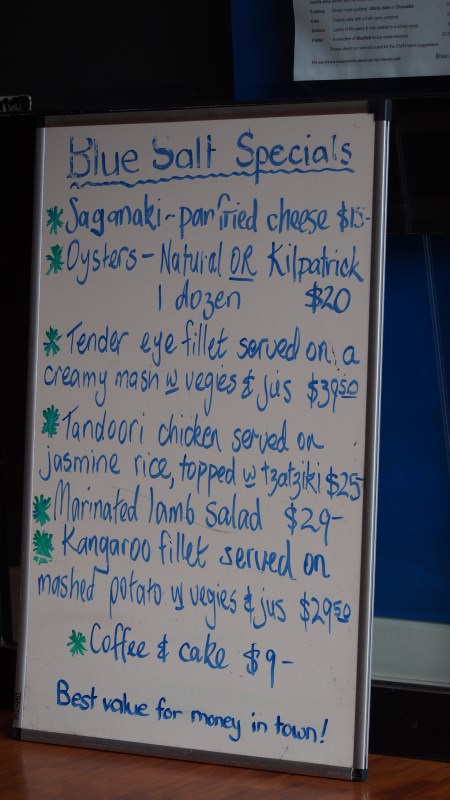 Blue Salt Specials
* Saganaki ~ panfried cheese $15-
* Oysters - Natural OR Kilpatrick
1 dozen $20
* Tender eye fillet served on a
creamy mash w vegies & jus $39 50
* Tandoori chicken served on
jasmine rice, topped w tzatziki $25
* Marinated lamb salad $29-
* Kangaroo fillet served on
mashed potato w vegies & jus $29 50
* Coffee & cake $9-
Best value for money in town!